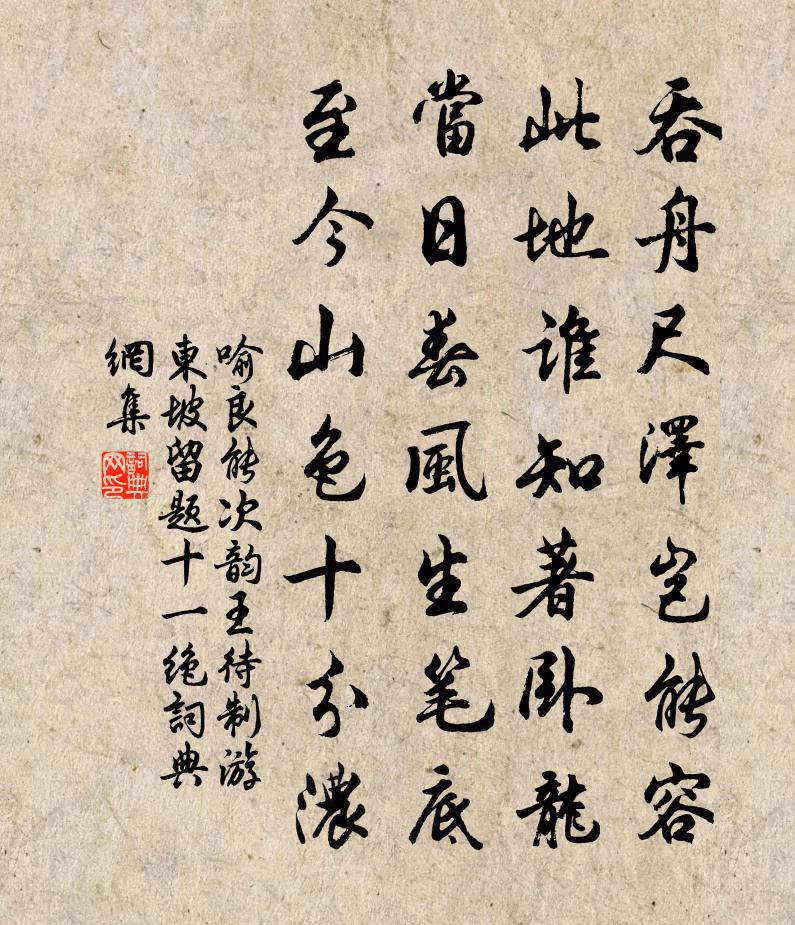 吞舟尺澤豈能容
此地誰知著臥龍
當日春風生笔底
至今山色十分濃
喻良能次韵王待制游
東坡留题十一绝詞典
網集
詞典
网印